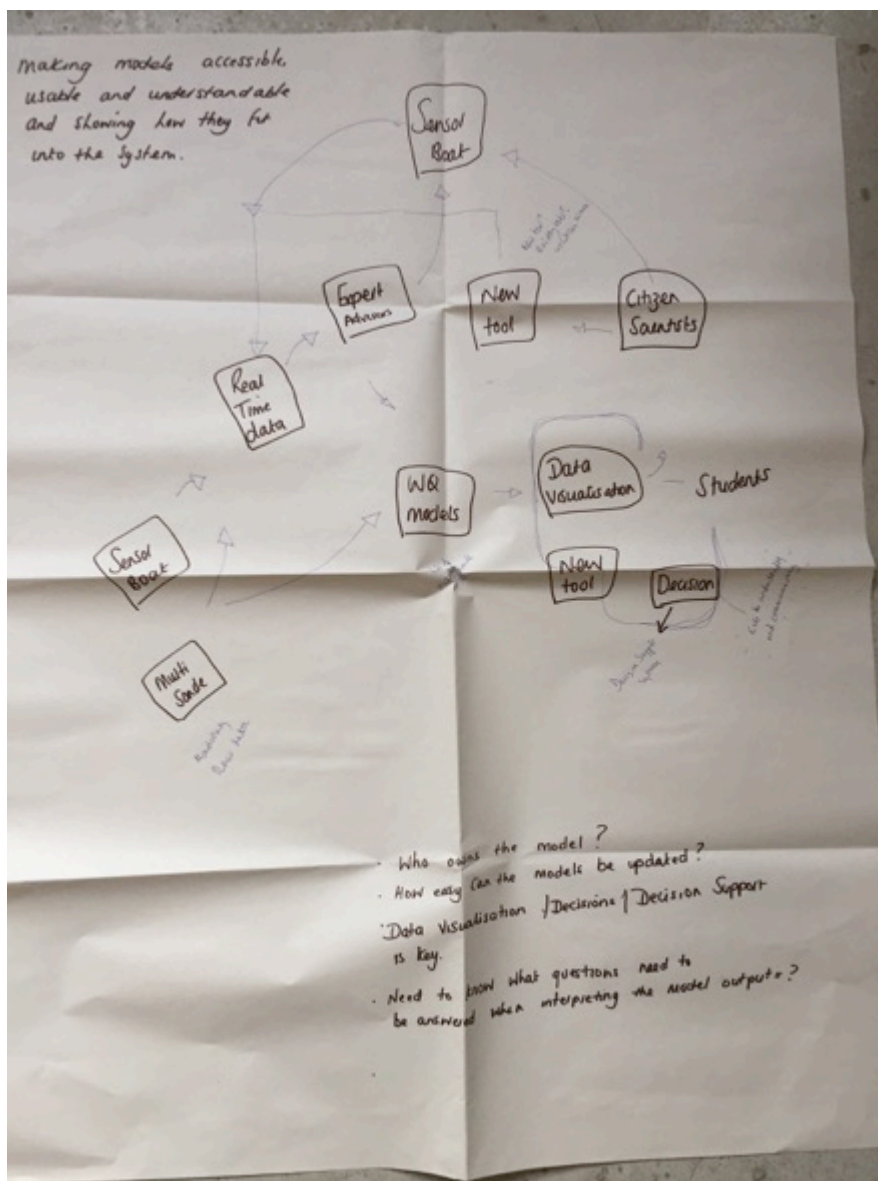 Making models accessible,
usable and understandable
and showing how they fit
into the system.
Sensor
Boat
Expert
Advisors
New
tool
Citizen
Scientists
Real
Time
data
WQ
models
Data
Visualisation
Students
Sensor
Boat
New
tool
Decision
Multi
Sonde
Decision Support
System
· Who owns the model?
· How easy can the models be updated?
· Data Visualisation / Decisions / Decision Support
is key.
· Need to know what questions need to
be answered when interpreting the model outputs?